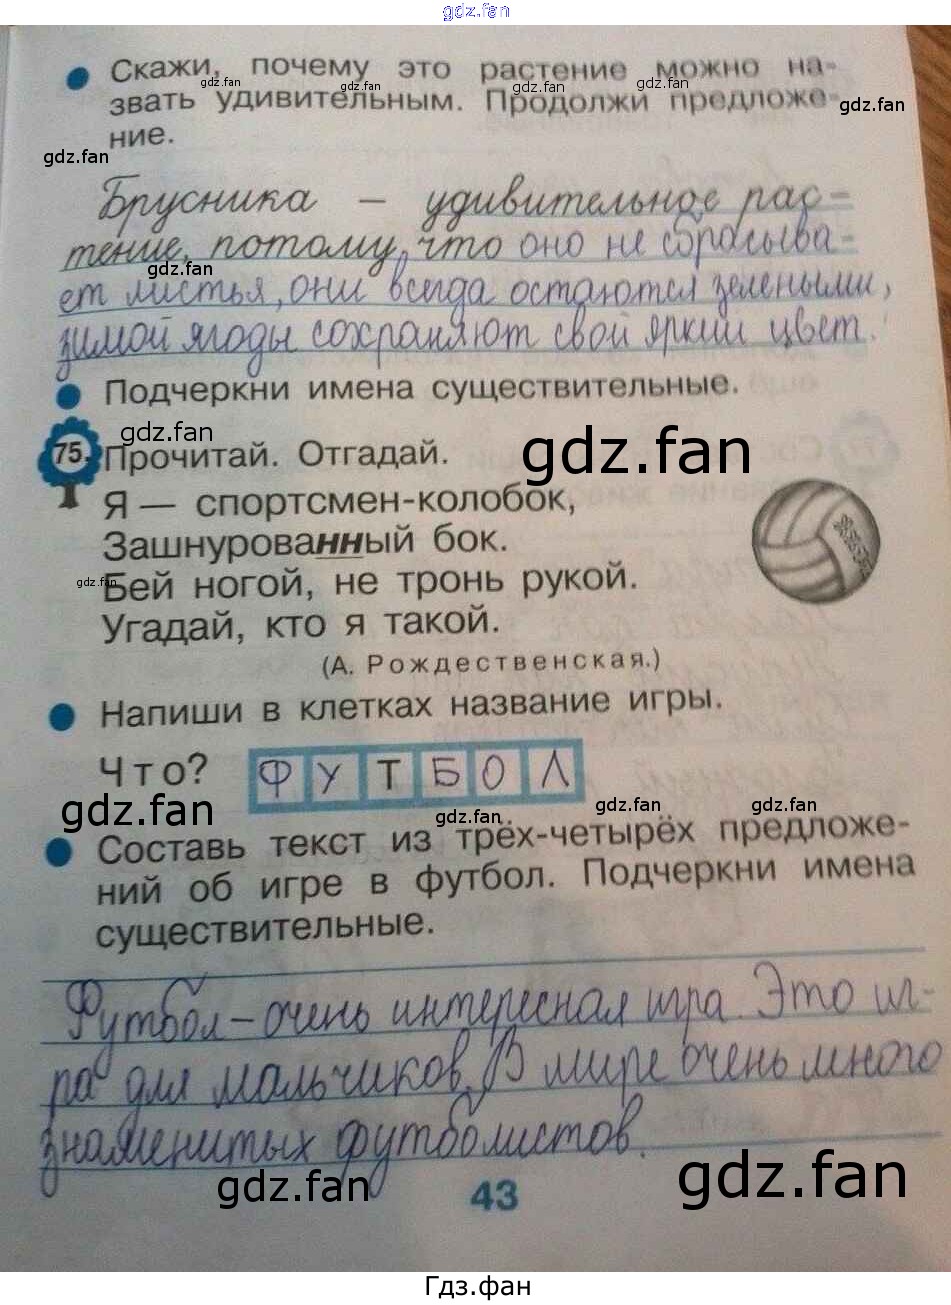 gdz.fan
Скажи, почему это растение можно на-
gdz.fan gdz.fan gdz.fan
звать удивительным. Продолжи предложе-
gdz.fan gdz.fan
ние.
gdz.fan
Брусника – удивительное рас-
тение, потому, что оно не сбрасыва-
gdz.fan
ет листья, они всегда остаются зелеными,
зимой ягоды сохраняют свой яркий цвет.
Подчеркни имена существительные.
gdz.fan
gdz.fan
75. Прочитай. Отгадай.
Я — спортсмен-колобок,
Зашнурованный бок.
gdz.fan
Бей ногой, не тронь рукой.
Угадай, кто я такой.
(А. Рождественская.)
Напиши в клетках название игры.
Что? ФУТБОЛ
gdz.fan gdz.fan gdz.fan gdz.fan
Составь текст из трёх-четырёх предложе-
ний об игре в футбол. Подчеркни имена
существительные.
Футбол – очень интересная игра. Это иг-
ра для мальчиков. В мире очень много
знаменитых футболистов.
gdz.fan
43
gdz.fan
Гдз.фан